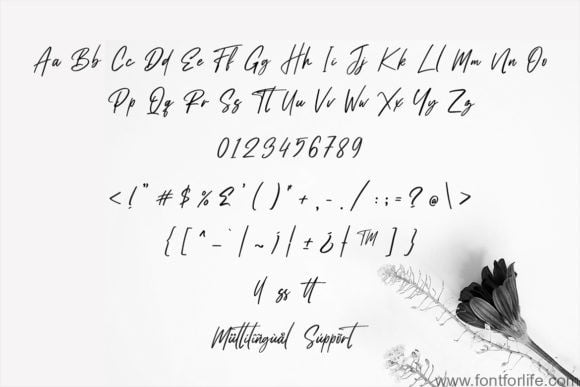 Aa Bb Cc Dd Ee Ff Gg Hh Ii Jj Kk Ll Mm Nn Oo
Pp Qq Rr Ss Tt Uu Vv Ww Xx Yy Zz
0123456789
< ! " # $ % & ' ( ) * + , - . / : ; = ? @ \ >
{ [ ^ _ ` | ~ ¡ ¦ ± ¿ ƒ ™ ] }
ll ss tt
Mültilïngüål Süppört
www.fontforlife.com